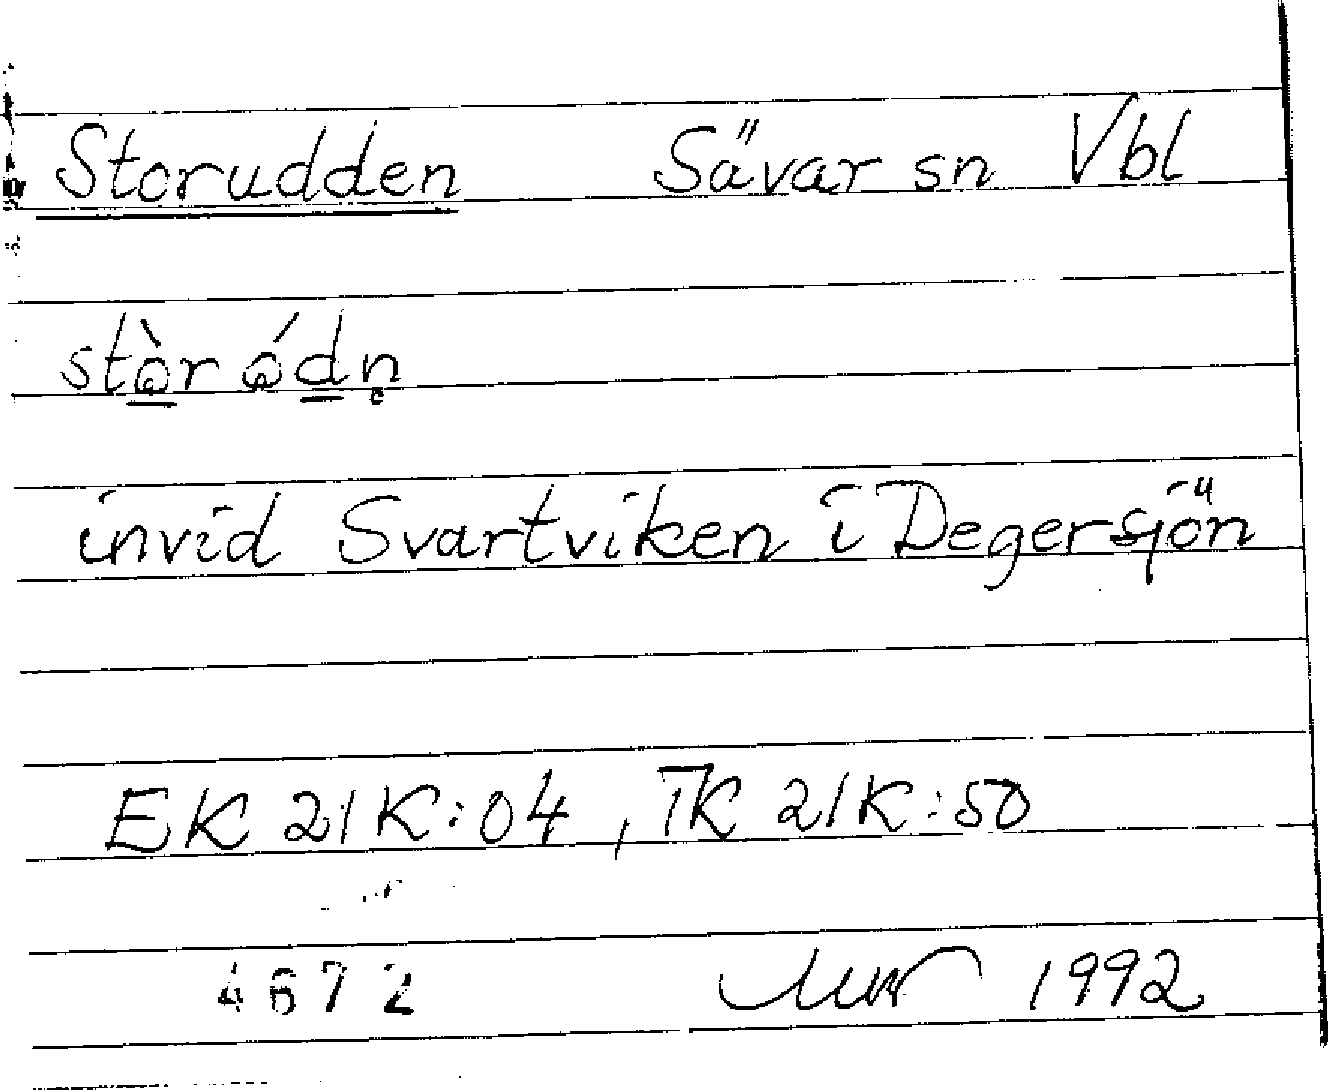 Storudden Sävar sn Vbl
stòr ódṇ
invid Svartviken i Degersjön
EK 21K:04, TK 21K:50
4672 1992